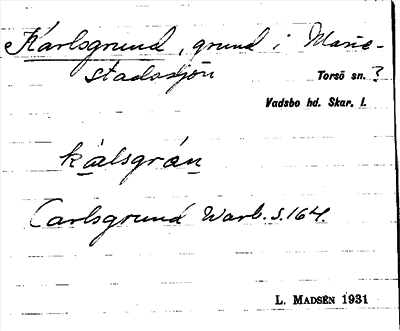 Karlsgrund, grund i Marie-
stadssjön
Torsö sn. ?
Vadsbo hd. Skar. l.
kàlsgrón
Carlsgrund Warb. s. 164.
L. MADSÉN 1931